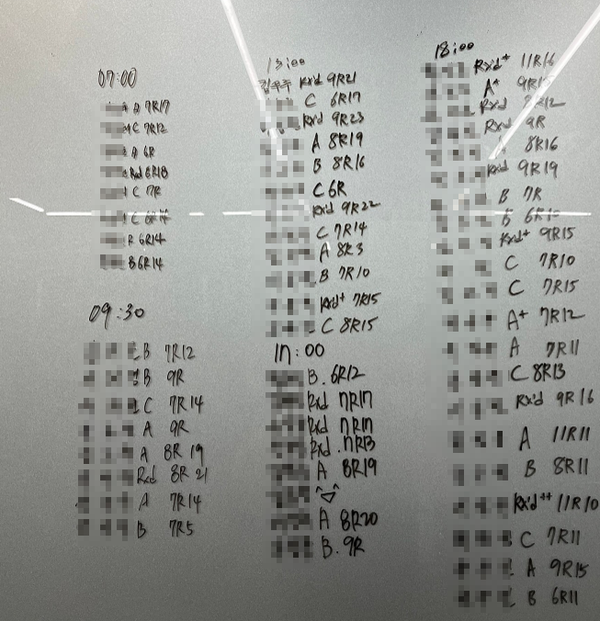 07:00
B 7R17
C 7R12
A 6R
Rxd 6R18
C 7R
C 6R14
6R14
B 6R14
09:30
B 7R12
B 9R
C 7R14
A 9R
A 8R 19
Rxd 8R 21
A 7R14
B 7R5
13:00
Rxd 9R21
C 6R17
Rxd 9R23
A 8R19
B 8R16
C 6R
Rxd 9R22
C 7R14
A 8R3
B 7R10
Rxd+ 7R15
C 8R15
17:00
B. 6R12
Rxd 7R17
Rxd 7R17
Rxd. 7R13
A 8R19
A 8R20
B. 9R
18:00
Rx'd+ 11R16
A+
Rxd 8R12
Rxd 9R
8R16
Rxd 9R19
B 7R
B
Rxd+ 9R15
C 7R10
C 7R15
A+ 7R12
A 7R11
C 8R13
Rx'd 9R16
A 11R11
B 8R11
Rx'd++ 11R10
C 7R11
A 9R15
B 6R11